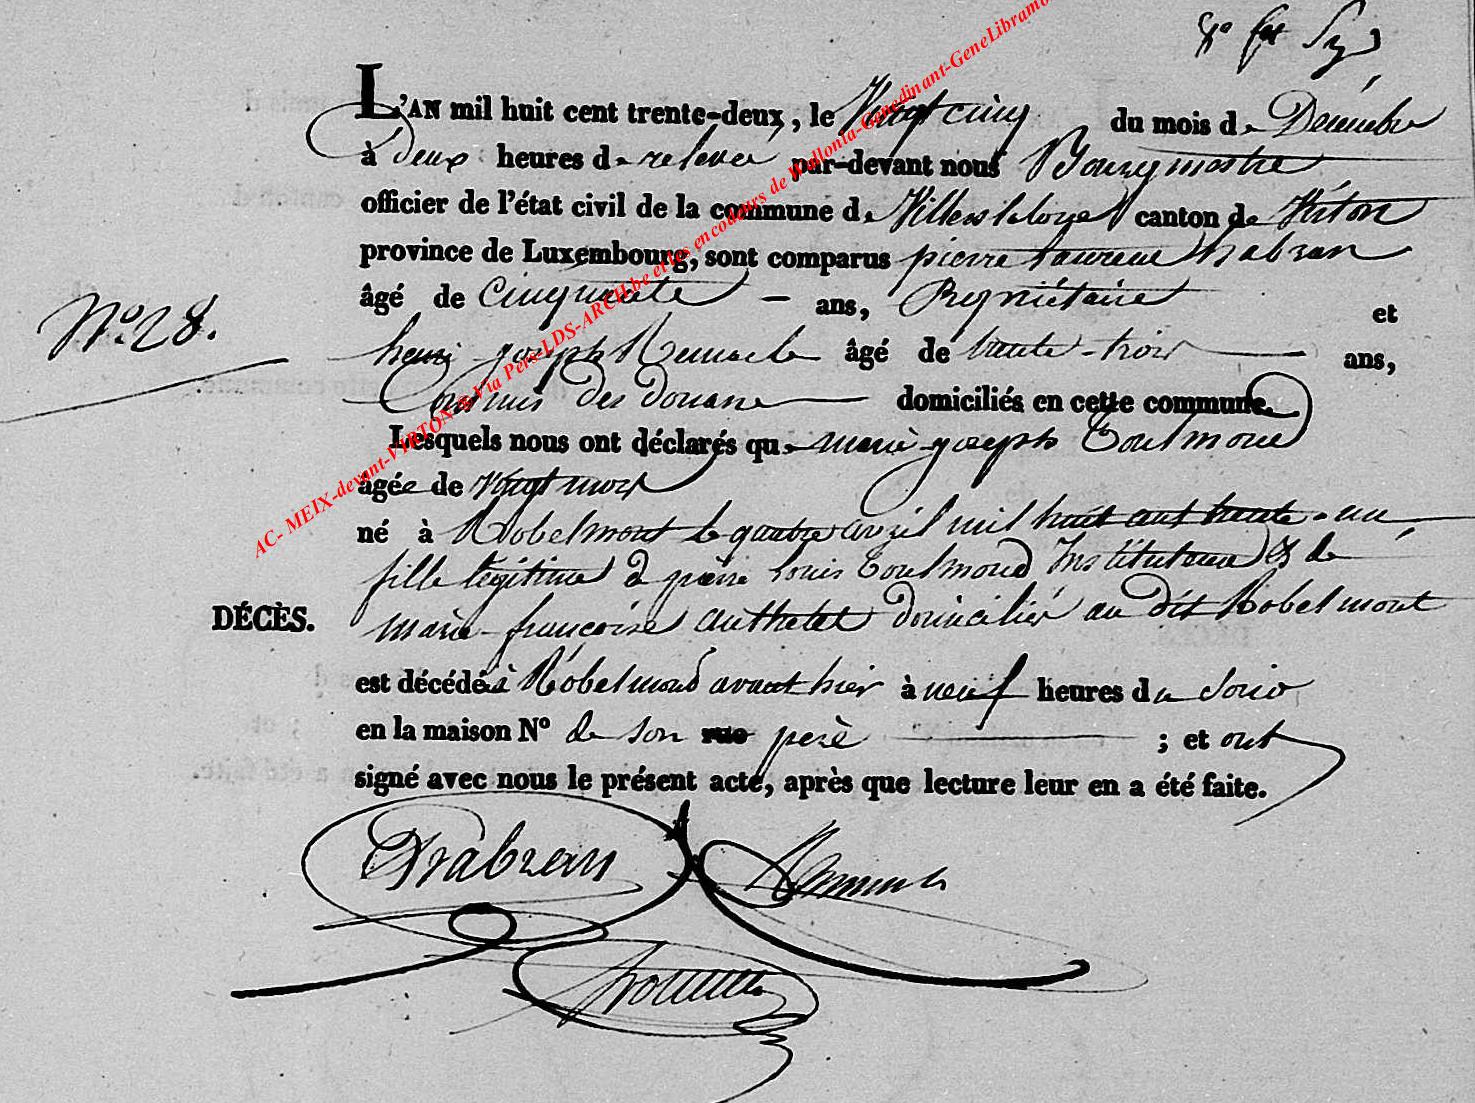 L'AN mil huit cent trente-deux, le Vingt cinq du mois de Décembre
à deux heures de relevée par-devant nous Bourgmestre
officier de l'état civil de la commune de Villers la loue canton de Virton
province de Luxembourg, sont comparus pierre laurent habran
âgé de Cinquante – ans, Propriétaire et
N° 28.
henri joseph Remacle âgé de trente-trois ans,
Commis des douane domiciliés en cette commune.
Lesquels nous ont déclarés que marie joseph Toulmond
âgée de vingt mois
né à Robelmont le quatre avril mil huit cent trente-un
fille légitime de pierre louis Toulmond Instituteur et de
DÉCÈS.
marie françoise authelet domicilié au dit Robelmont
est décédée à Robelmond avant hier à neuf heures du Soir
en la maison N° de son rue père ; et ont
signé avec nous le présent acte, après que lecture leur en a été faite.
Habran Remacle
AC- MEIX-devant-VIRTON & Via Pers-LDS-ARCH.be et les encodeurs de Wallonia-Genedinant-GeneLibramo